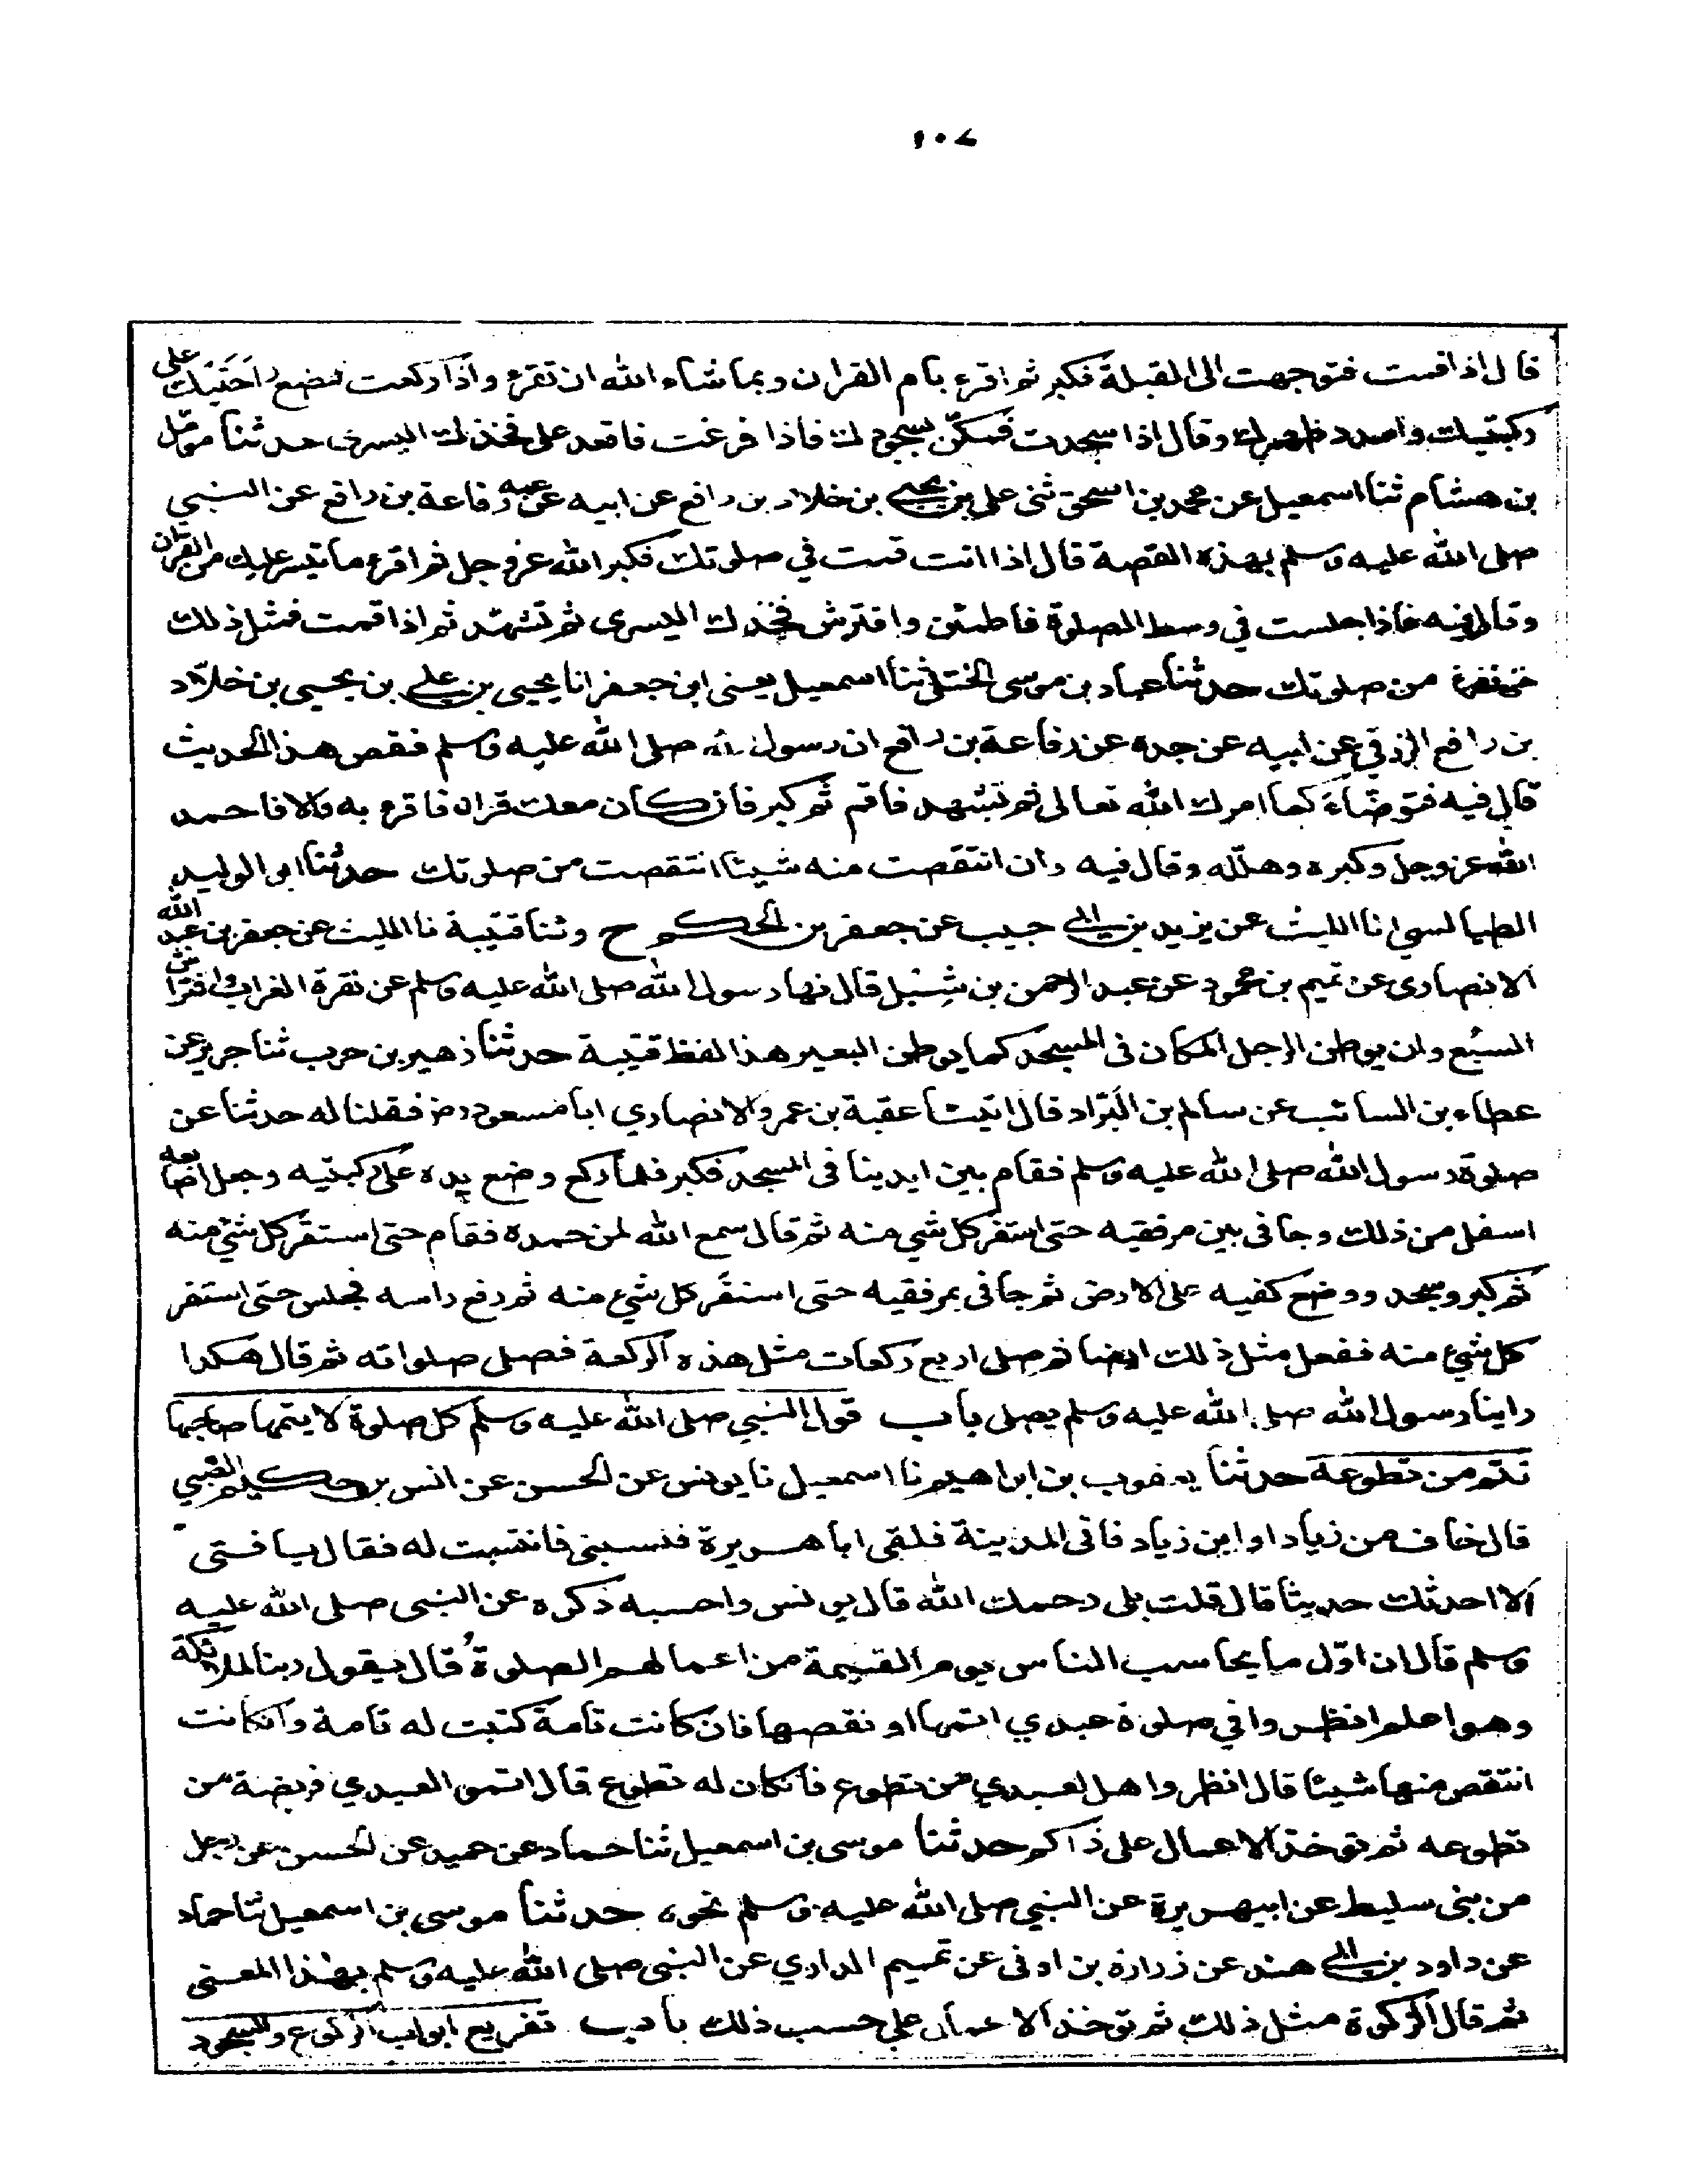 ١٠٧
قال اذا قمت فتوجهت الى القبلة فكبر ثم اقرء بام القران وبما شاء الله ان تقرء واذا ركعت فضع راحتيك على
ركبتيك وامدد ظهرك وقال اذا سجدت فمكّن لسجودك فاذا فرغت فاقعد على فخذك اليسرى حدثنا مومّل
بن هشام ثنا اسمعيل عن محمد بن اسحق ثنى علي بن يحيى بن خلاد بن رافع عن ابيه عن عمه رفاعة بن رافع عن النبي
صلى الله عليه وسلم بهذه القصة قال اذا انت قمت في صلوتك فكبر الله عزوجل ثم اقرء ما تيسر عليك من القران
وقال فيه فاذا جلست في وسط الصلوة فاطمئن وافترش فخذك اليسرى ثم تشهّد ثم اذا قمت فمثل ذلك
حتى تفرغ من صلوتك حدثنا عباد بن موسى الختلي ثنا اسمعيل يعنى ابن جعفر انا يحيى بن علي بن يحيى بن خلاّد
بن رافع الزرقي عن ابيه عن جده عن رفاعة بن رافع ان رسول الله صلى الله عليه وسلم فقص هذا الحديث
قال فيه فتوضّاء كما امرك الله تعالى ثم تشهد فاقم ثم كبر فان كان معك قران فاقرء به والا فاحمد
الله عزوجل وكبره وهلّله وقال فيه وان انتقصت منه شيئا انتقصت من صلوتك حدثنا ابو الوليد
الطيالسي انا الليث عن يزيد بن ابي حبيب عن جعفر بن الحكم ح وثنا قتيبة نا الليث عن جعفر بن عبد الله
الانصاري عن تميم بن محمود عن عبد الرحمن بن شِبْل قال نها رسول الله صلى الله عليه وسلم عن نقرة الغراب وافتراش
السبُع وان يوطن الرجل المكان فى المسجد كما يوطن البعير هذا لفظ قتيبة حدثنا زهير بن حرب ثنا جرير عن
عطاء بن السائب عن سالم بن البَرّاد قال اتينا عقبة بن عمرو الانصاري ابا مسعود رض فقلنا له حدثنا عن
صلوة رسول الله صلى الله عليه وسلم فقام بين ايدينا فى المسجد فكبر فلما ركع وضع يده على ركبتيه وجعل اصابعه
اسفل من ذلك وجافى بين مرفقيه حتى استقر كل شي منه ثم قال سمع الله لمن حمده فقام حتى استقر كل شئ منه
ثم كبر وسجد ووضع كفيه على الارض ثم جافى بمرفقيه حتى استقر كل شيء منه ثم رفع راسه فجلس حتى استقر
كل شيء منه ففعل مثل ذلك ايضا ثم صلى اربع ركعات مثل هذه الركعة فصلى صلواته ثم قال هكذا
راينا رسول الله صلى الله عليه وسلم يصلي باب قول النبي صلى الله عليه وسلم كل صلوة لا يتمها صاحبها
تتم من تطوعه حدثنا يعقوب بن ابراهيم نا اسمعيل نا يونس عن الحسن عن انس بن حكيم الضبي
قال خاف من زياد او ابن زياد فاتى المدينة فلقى ابا هريرة فنسبنى فانتسبت له فقال يا فتى
الا احدثك حديثا قال قلت بلى رحمك الله قال يونس واحسبه ذكره عن النبى صلى الله عليه
وسلم قال ان اوّل ما يحاسب الناس يوم القيمة من اعمالهم الصلوة قال يقول ربنا لملائكة
وهو اعلم انظروا في صلوة عبدي اتمها او نقصها فان كانت تامة كتبت له تامة وان كانت
انتقص منها شيئا قال انظروا هل لعبدي من تطوع فان كان له تطوع قال اتموا لعبدي فريضة من
تطوعه ثم توخذ الاعمال على ذاكم حدثنا موسى بن اسمعيل ثنا حماد عن حميد عن الحسن عن رجل
من بنى سليط عن ابيهريرة عن النبي صلى الله عليه وسلم نحوه حدثنا موسى بن اسمعيل ثنا حماد
عن داود بن ابي هند عن زرارة بن اوفى عن تميم الداري عن النبى صلى الله عليه وسلم بهذا المعنى
ثم قال الزكوة مثل ذلك ثم توخذ الاعمال علي حسب ذلك باب تفريع ابواب الركوع والسجود